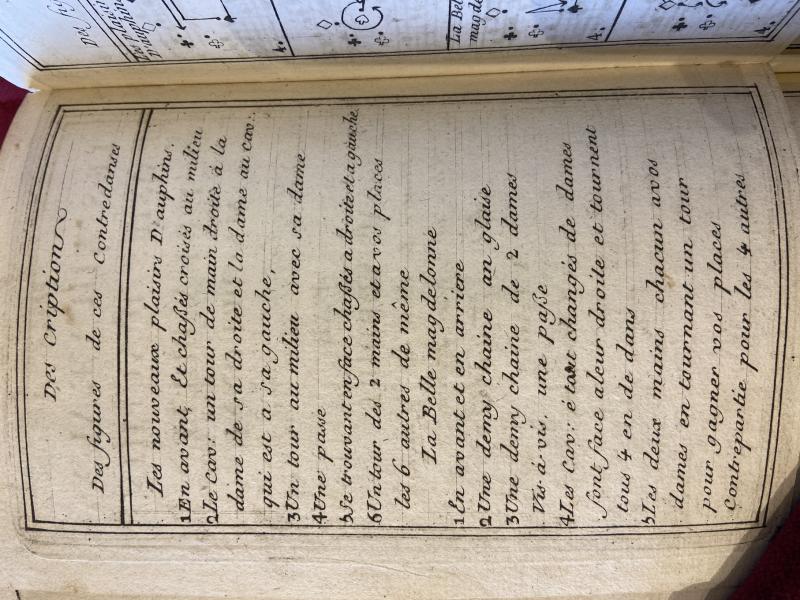 Des Cription
Des figures de ces Contredanses
Les nouveaux plaisirs D'auphins.
1 En avant, Et chaßés croisés au milieu
2 Le cav: un tour de main droite à la
dame de sa droite et la dame au cav:
qui est a sa gauche,
3 Un tour au milieu avec sa dame
4 Une passe
5 Se trouvant en face chaßés a droite et a gauche
6 Un tour des 2 mains et a vos places
les 6 autres de même
La Belle magdelonne
1 En avant et en arriere
2 Une demy chaine an glaise
3 Une demy chaine de 2 dames
Vis à vis une paße
4 Les Cav: é tant changés de dames
font face a leur droite et tournent
tous 4 en de dans
5 Les deux mains chacun a vos
dames en tournant un tour
pour gagner vos places
Contrepartie pour les 4 autres
La Bel
magde
4.
4.
4.